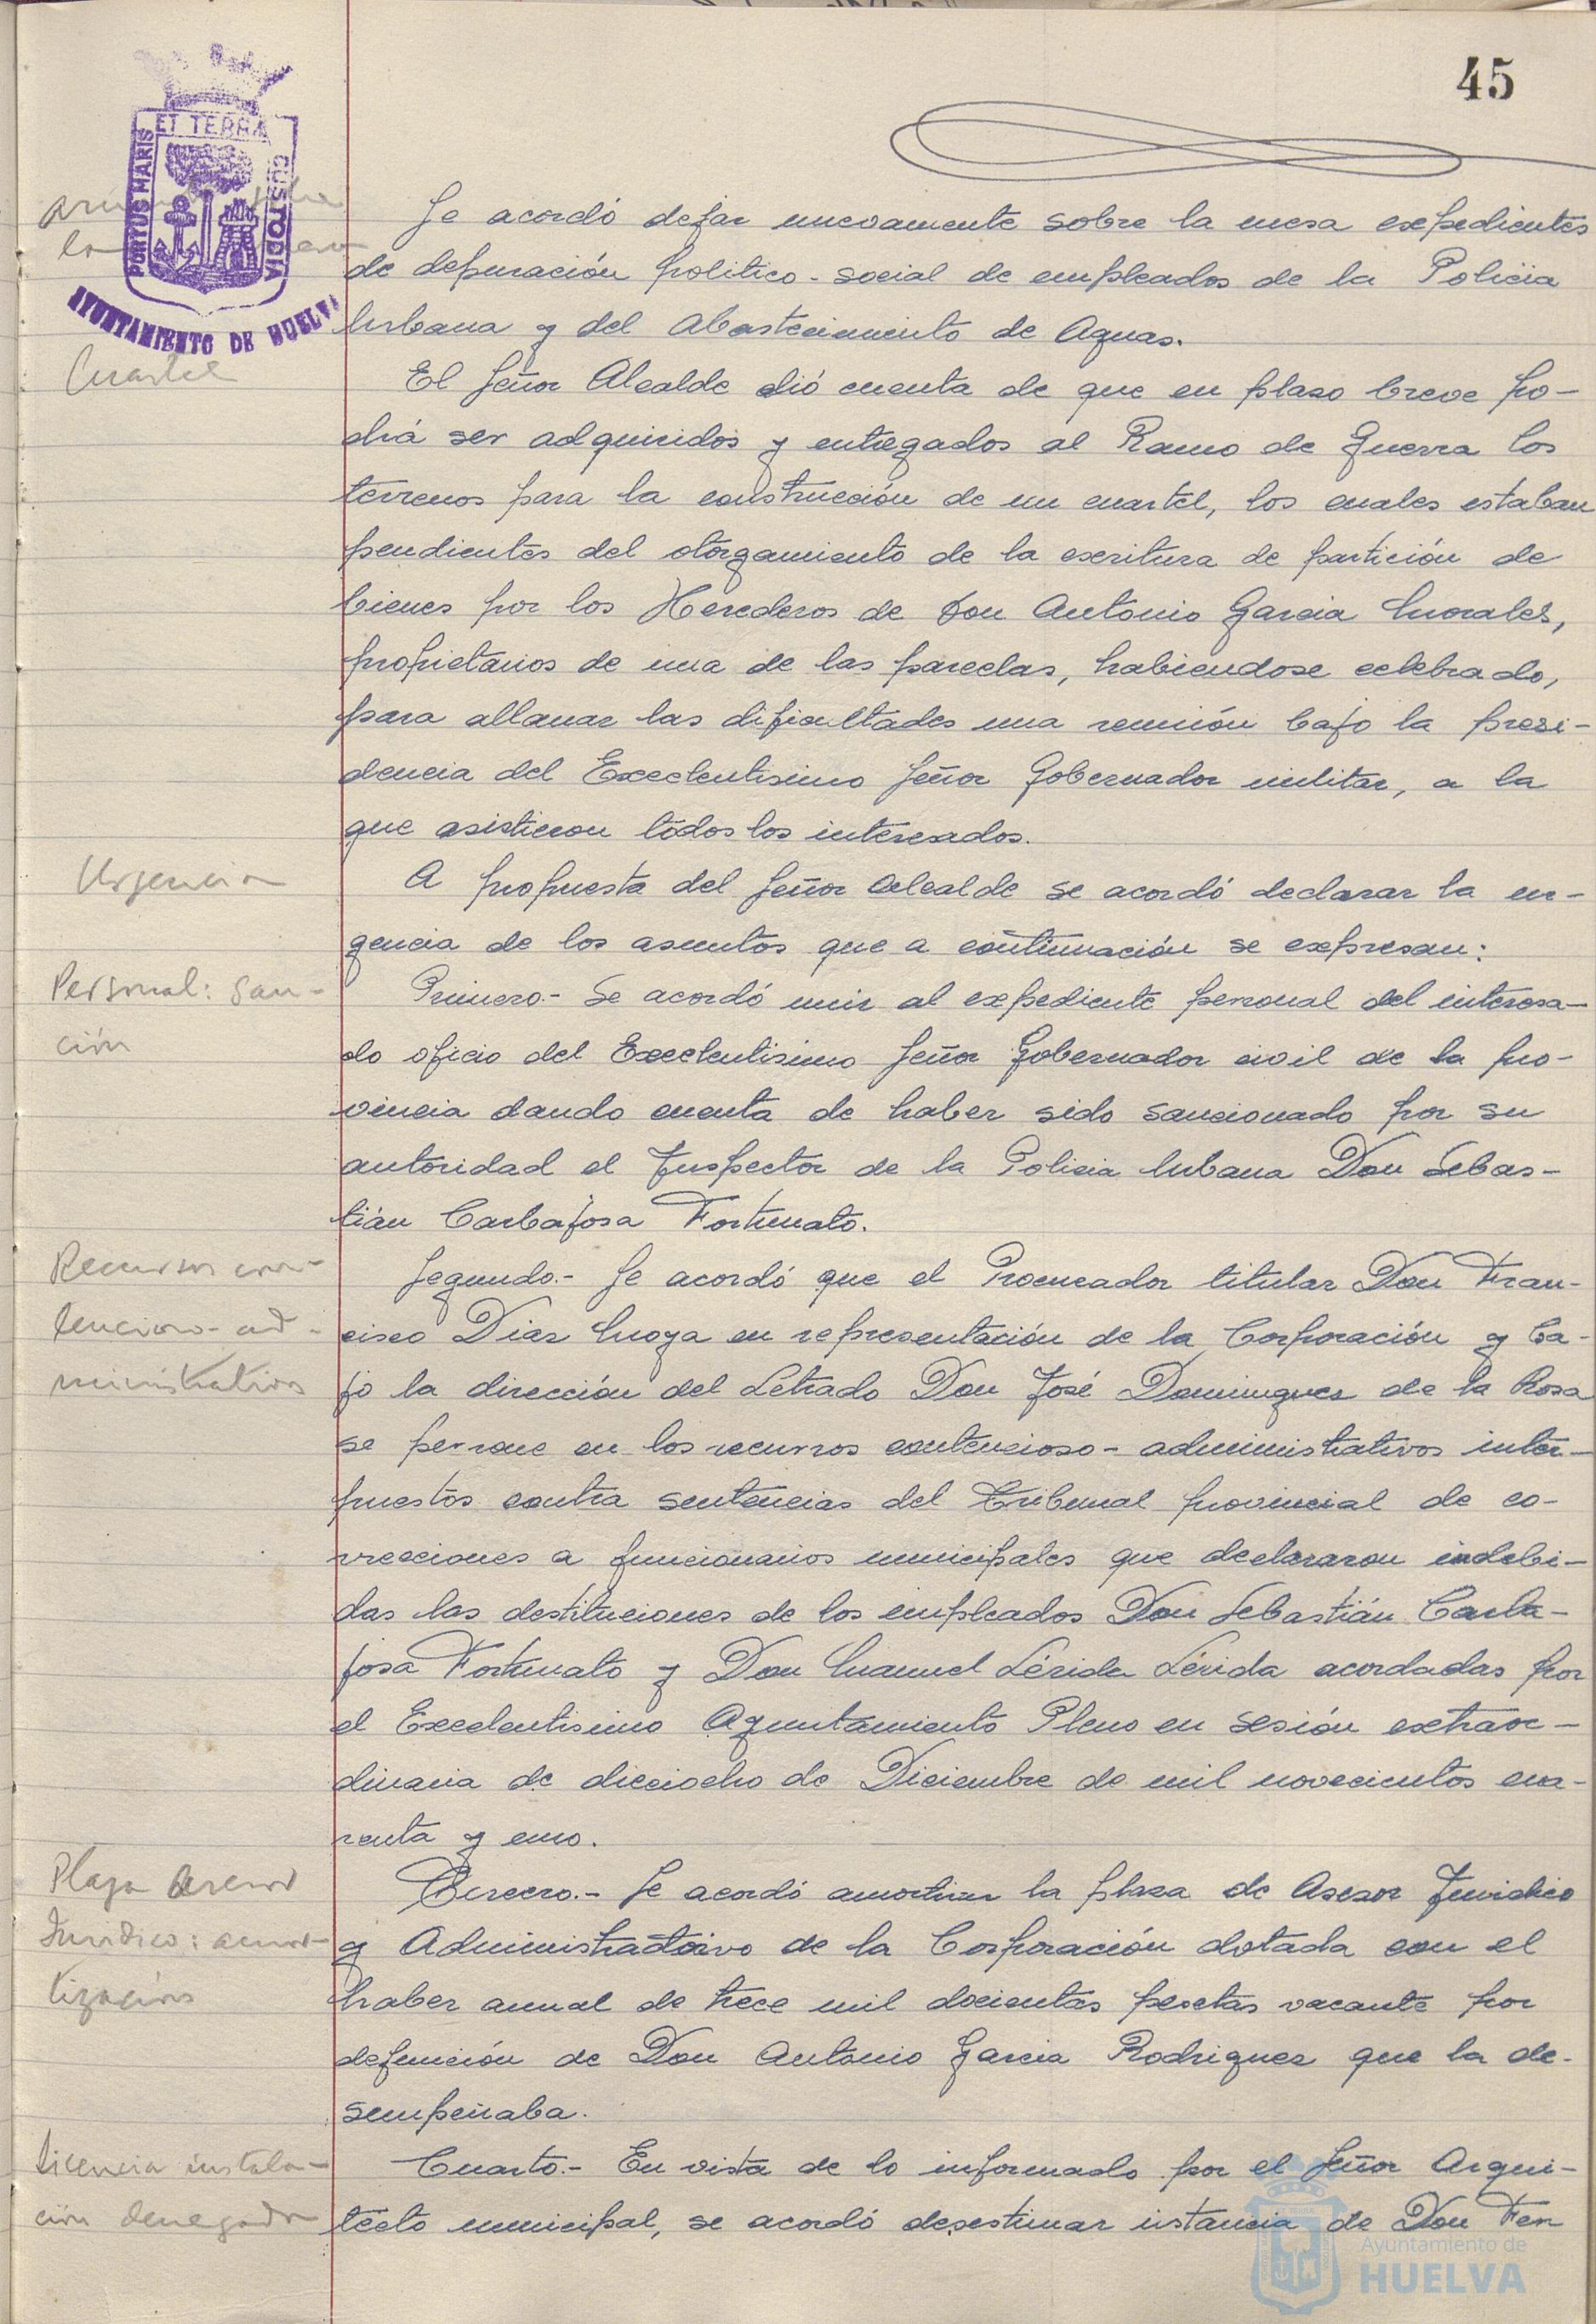 45
ET TERRA
PORTUS MARIS
CUSTODIA
AYUNTAMIENTO DE HUELVA
Se acordó dejar nuevamente sobre la mesa expedientes
de depuración politico-social de empleados de la Policia
Urbana y del Abastecimiento de Aguas.
Cuartel
El Señor Alcalde dió cuenta de que en plazo breve po-
drá ser adquiridos y entregados al Ramo de Guerra los
terrenos para la construcción de un cuartel, los cuales estaban
pendientes del otorgamiento de la escritura de partición de
bienes por los Herederos de Don Antonio Garcia Morales,
propietarios de una de las parcelas, habiendose celebrado,
para allanar las dificultades una reunión bajo la presi-
dencia del Excelentisimo Señor Gobernador militar, a la
que asistieron todos los interesados.
Urgencia
A propuesta del Señor Alcalde se acordó declarar la ur-
gencia de los asuntos que a continuación se expresan:
Personal: San-
ción
Primero.- Se acordó unir al expediente personal del interesa-
do oficio del Excelentisimo Señor Gobernador civil de la pro-
vincia dando cuenta de haber sido sancionado por su
autoridad el Inspector de la Policia Urbana Don Sebas-
tián Carbajosa Fortunato.
Recursos con-
tencioso-ad-
ministrativos
Segundo.- Se acordó que el Procurador titular Don Fran-
cisco Diaz Moya en representación de la Corporación y ba-
jo la dirección del Letrado Don José Dominguez de la Rosa
se persone en los recursos contencioso-administrativos inter-
puestos contra sentencias del Tribunal provincial de co-
rrecciones a funcionarios municipales que declararon indebi-
das las destituciones de los empleados Don Sebastián Carba-
josa Fortunato y Don Manuel Lérida Lérida acordadas por
el Excelentisimo Ayuntamiento Pleno en sesión extraor-
dinaria de dieciocho de Diciembre de mil novecientos cua-
renta y uno.
Plaza Asesor
Juridico: amor-
tización
Tercero.- Se acordó amortizar la plaza de Asesor Juridico
y Administrativo de la Corporación dotada con el
haber anual de trece mil docientas pesetas vacante por
defunción de Don Antonio Garcia Rodriguez que la de-
sempeñaba.
Licencia instala-
ción denegada
Cuarto.- En vista de lo informado por el Señor Arqui-
tecto municipal, se acordó desestimar istancia de Don Fer
Ayuntamiento de
HUELVA